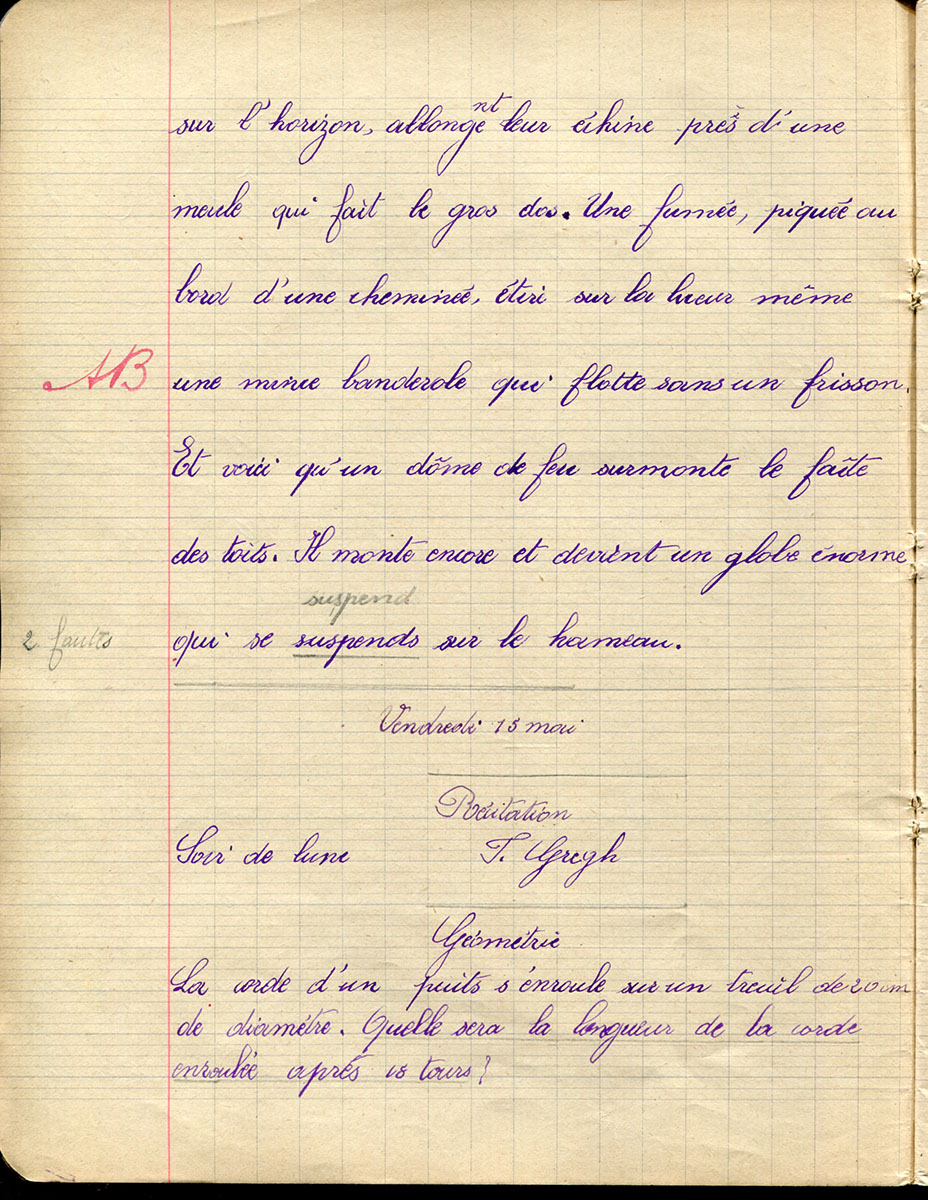 sur l'horizon, allongent leur échine près d'une
meule qui fait le gros dos. Une fumée, piquée au
bord d'une cheminée, étiri sur la lueur même
AB
une mince banderole qui flotte sans un frisson.
Et voici qu'un dôme de feu surmonte le faîte
des toits. Il monte encore et devient un globe énorme
suspend
2 fautes
qui se suspends sur le hameau.
Vendredi 15 mai
Récitation
Soir de lune F. Gregh
Géométrie
La corde d'un puits s'enroule sur un treuil de 20 cm
de diamétre. Quelle sera la longueur de la corde
enroulée aprés 18 tours?